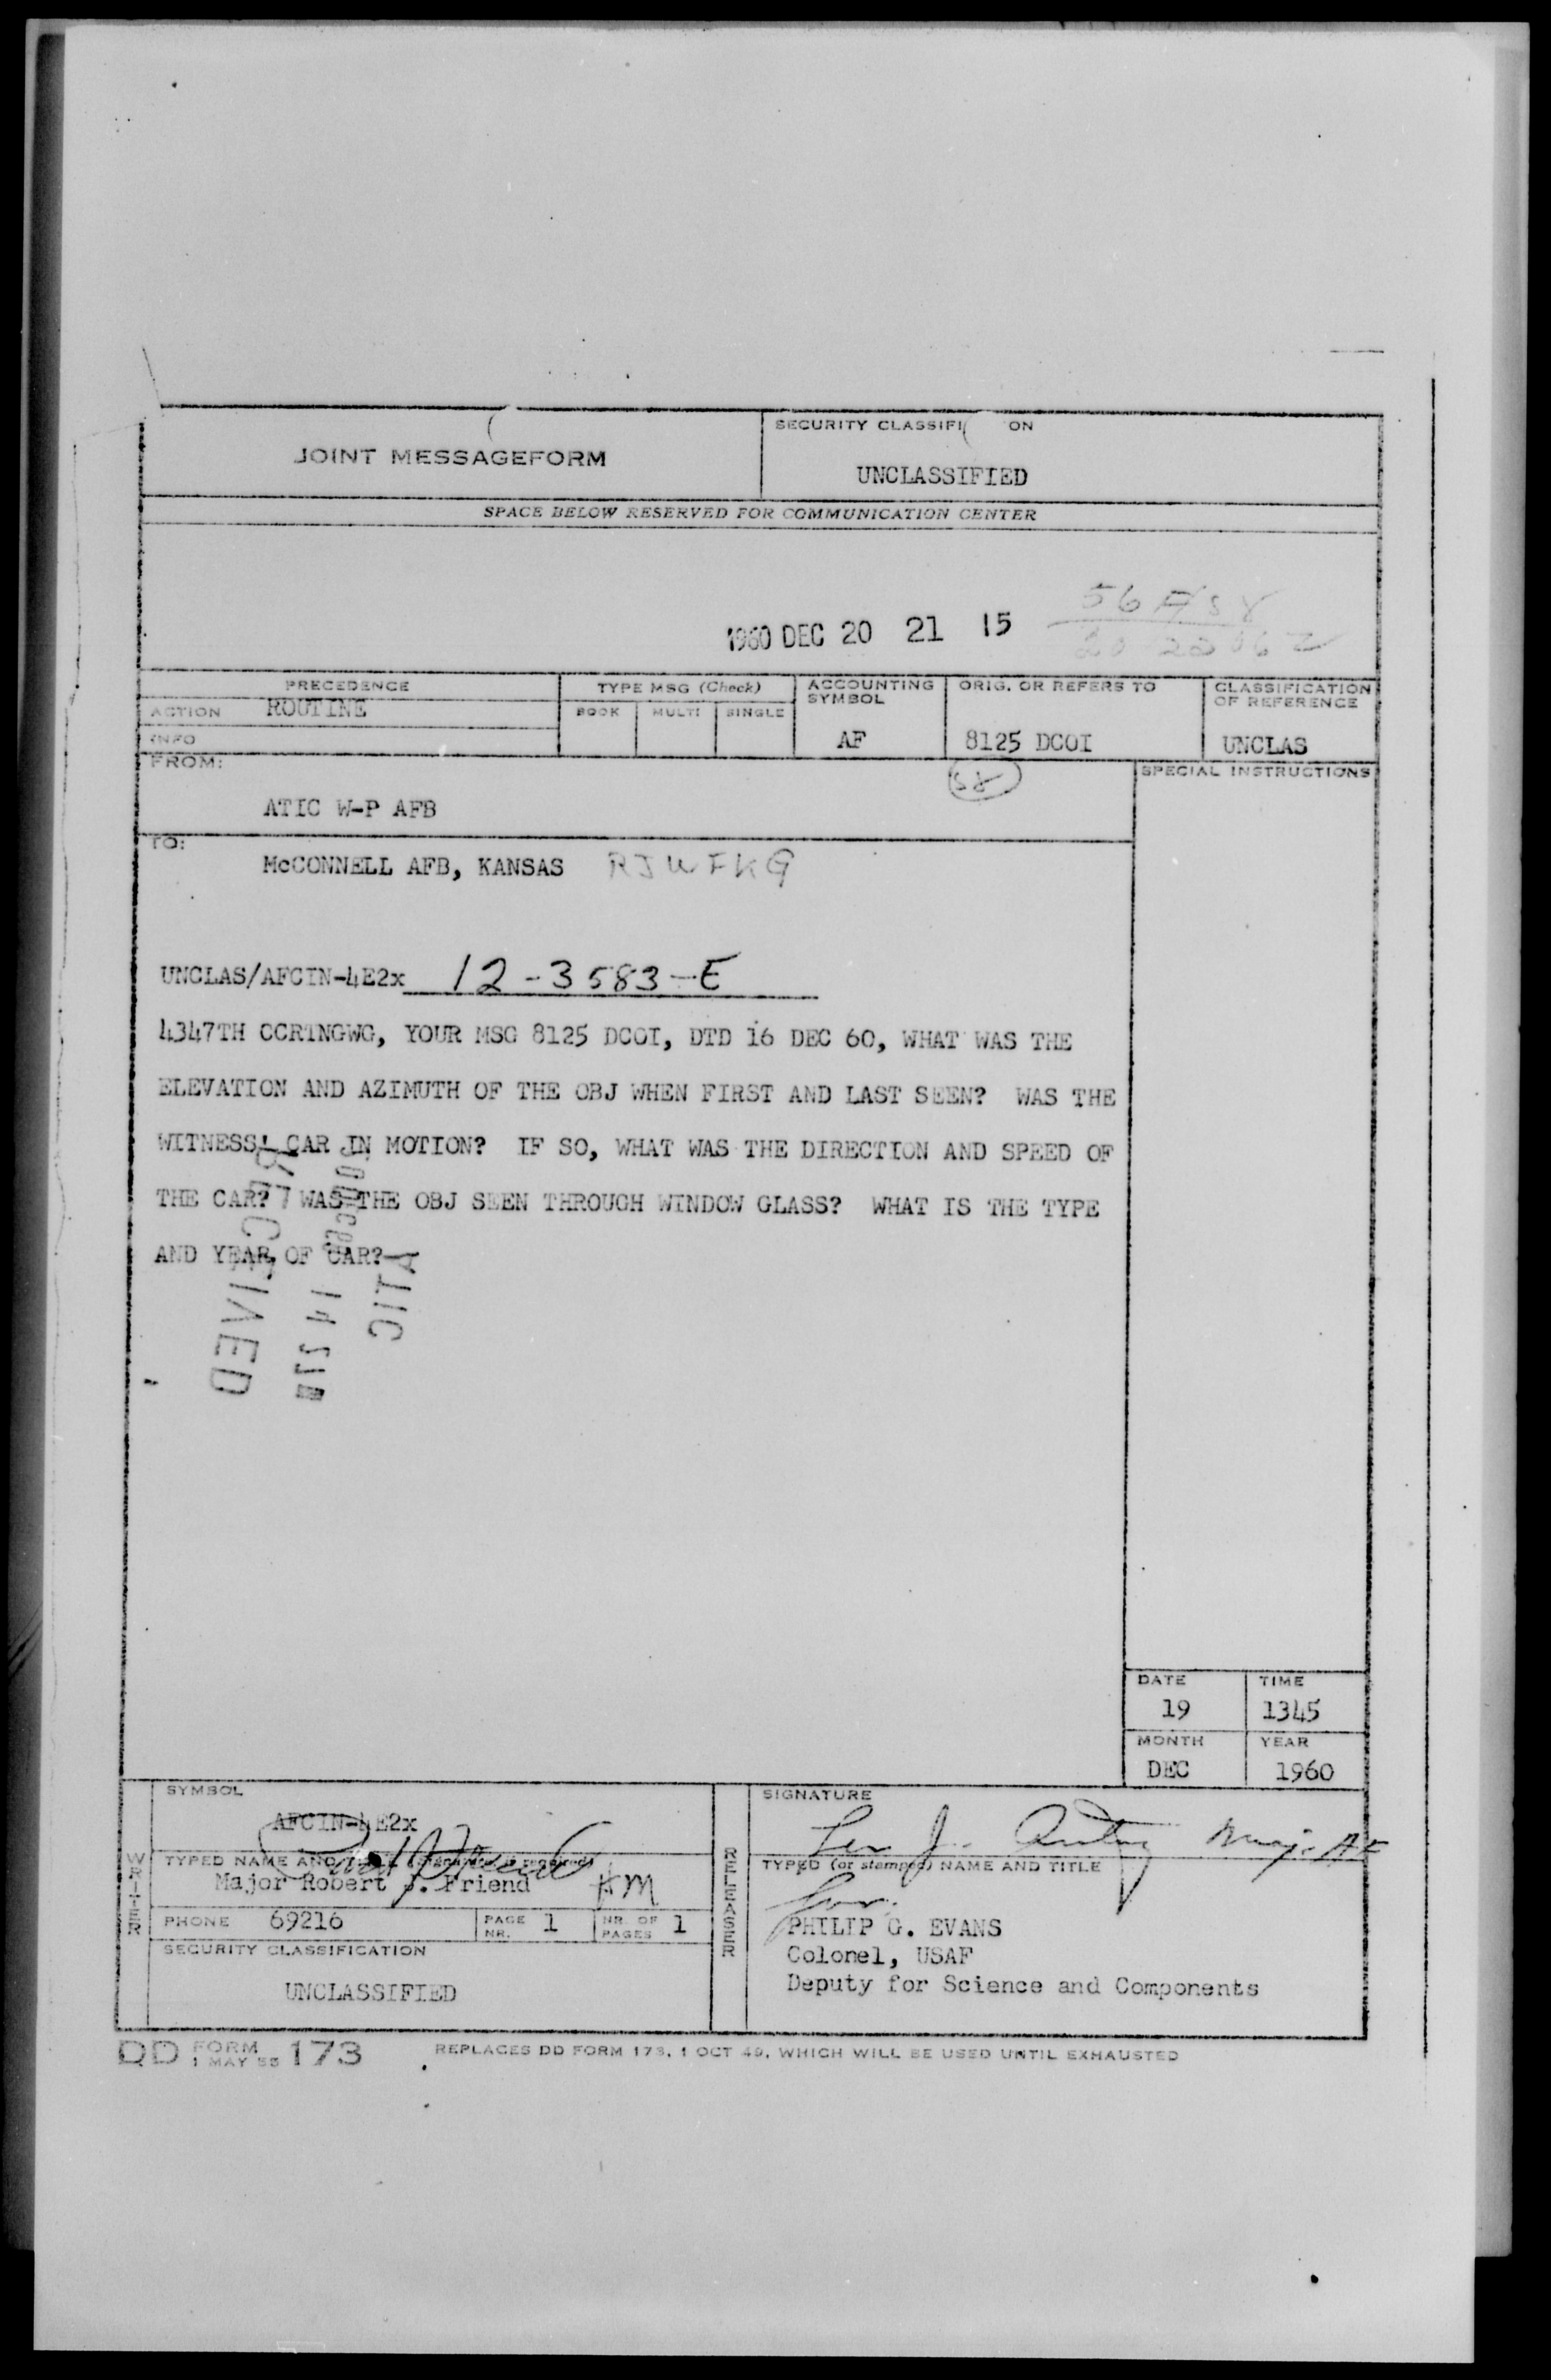 JOINT MESSAGEFORM
SECURITY CLASSIFI ON
UNCLASSIFIED
SPACE BELOW RESERVED FOR COMMUNICATION CENTER
1960 DEC 20 21 15
PRECEDENCE
TYPE MSG (Check)
ACCOUNTING SYMBOL
ORIG. OR REFERS TO
CLASSIFICATION OF REFERENCE
ACTION ROUTINE
BOOK MULTI SINGLE
INFO
AF
8125 DCOI
UNCLAS
FROM:
SPECIAL INSTRUCTIONS
ATIC W-P AFB
TO:
McCONNELL AFB, KANSAS RJWFKG
UNCLAS/AFCIN-4E2x 12-3583-E
4347TH CCRTNGWG, YOUR MSG 8125 DCOI, DTD 16 DEC 60, WHAT WAS THE
ELEVATION AND AZIMUTH OF THE OBJ WHEN FIRST AND LAST SEEN? WAS THE
WITNESS' CAR IN MOTION? IF SO, WHAT WAS THE DIRECTION AND SPEED OF
THE CAR? WAS THE OBJ SEEN THROUGH WINDOW GLASS? WHAT IS THE TYPE
AND YEAR OF CAR?
ATIC
DATE
19
TIME
1345
MONTH
DEC
YEAR
1960
WRITER
SYMBOL
AFCIN-4E2x
TYPED NAME AND
Major Robert J. Friend
PHONE 69216
PAGE NR. 1
NR. OF PAGES 1
SECURITY CLASSIFICATION
UNCLASSIFIED
RELEASER
SIGNATURE
Maj. AF
TYPED (or stamped) NAME AND TITLE
for
PHILIP G. EVANS
Colonel, USAF
Deputy for Science and Components
DD FORM 1 MAY 55 173
REPLACES DD FORM 173, 1 OCT 49, WHICH WILL BE USED UNTIL EXHAUSTED